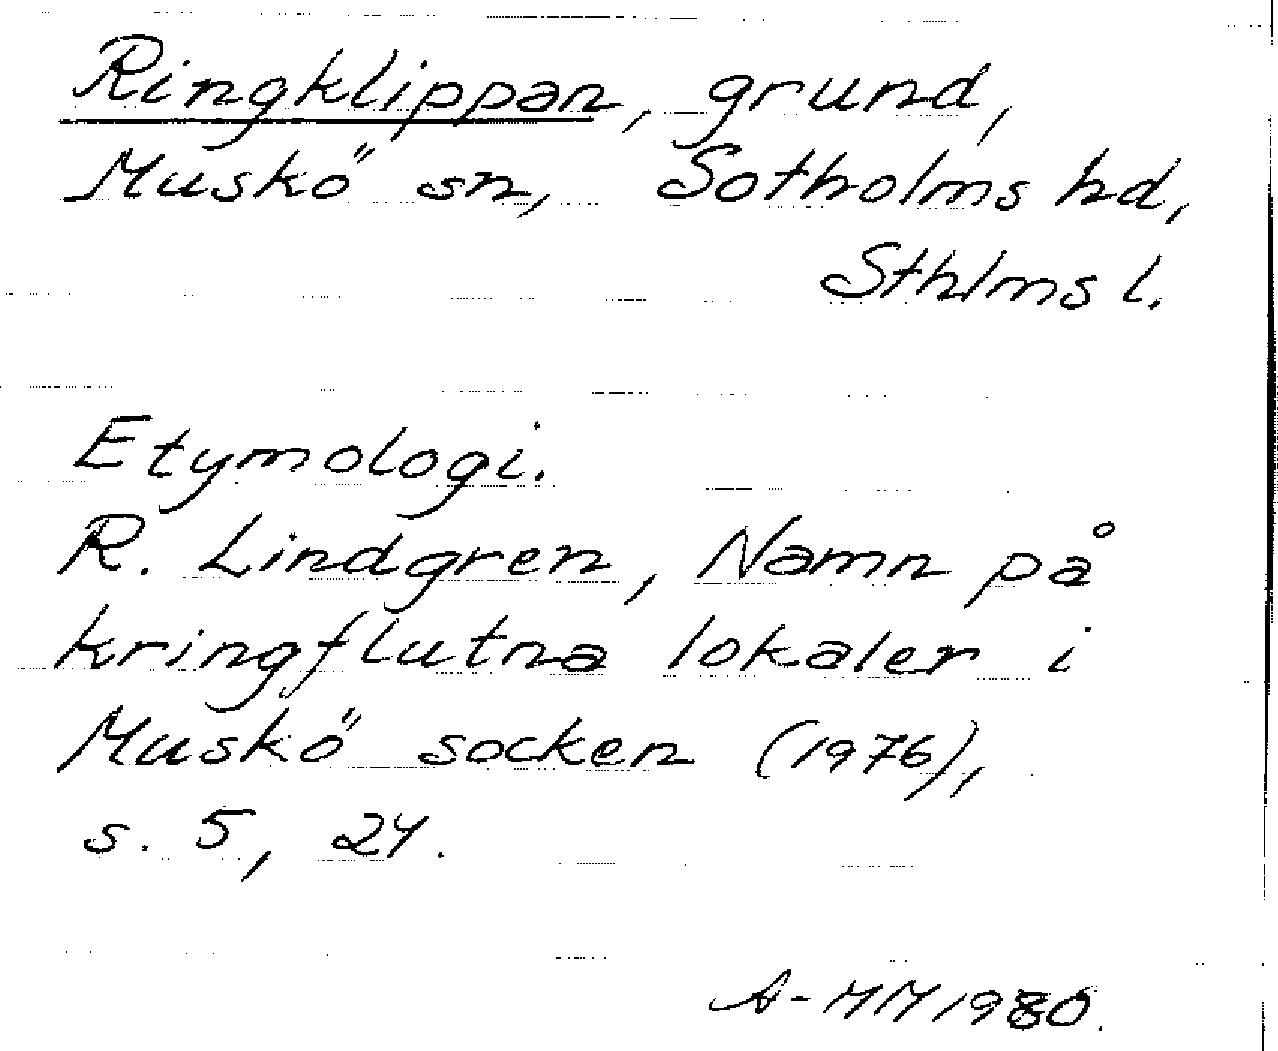 Ringklippan, grund,
Muskö sn, Sotholms hd,
Sthlms l.
Etymologi.
R. Lindgren, Namn på
kringflutna lokaler i
Muskö socken (1976),
s. 5, 24.
A-MM 1980.